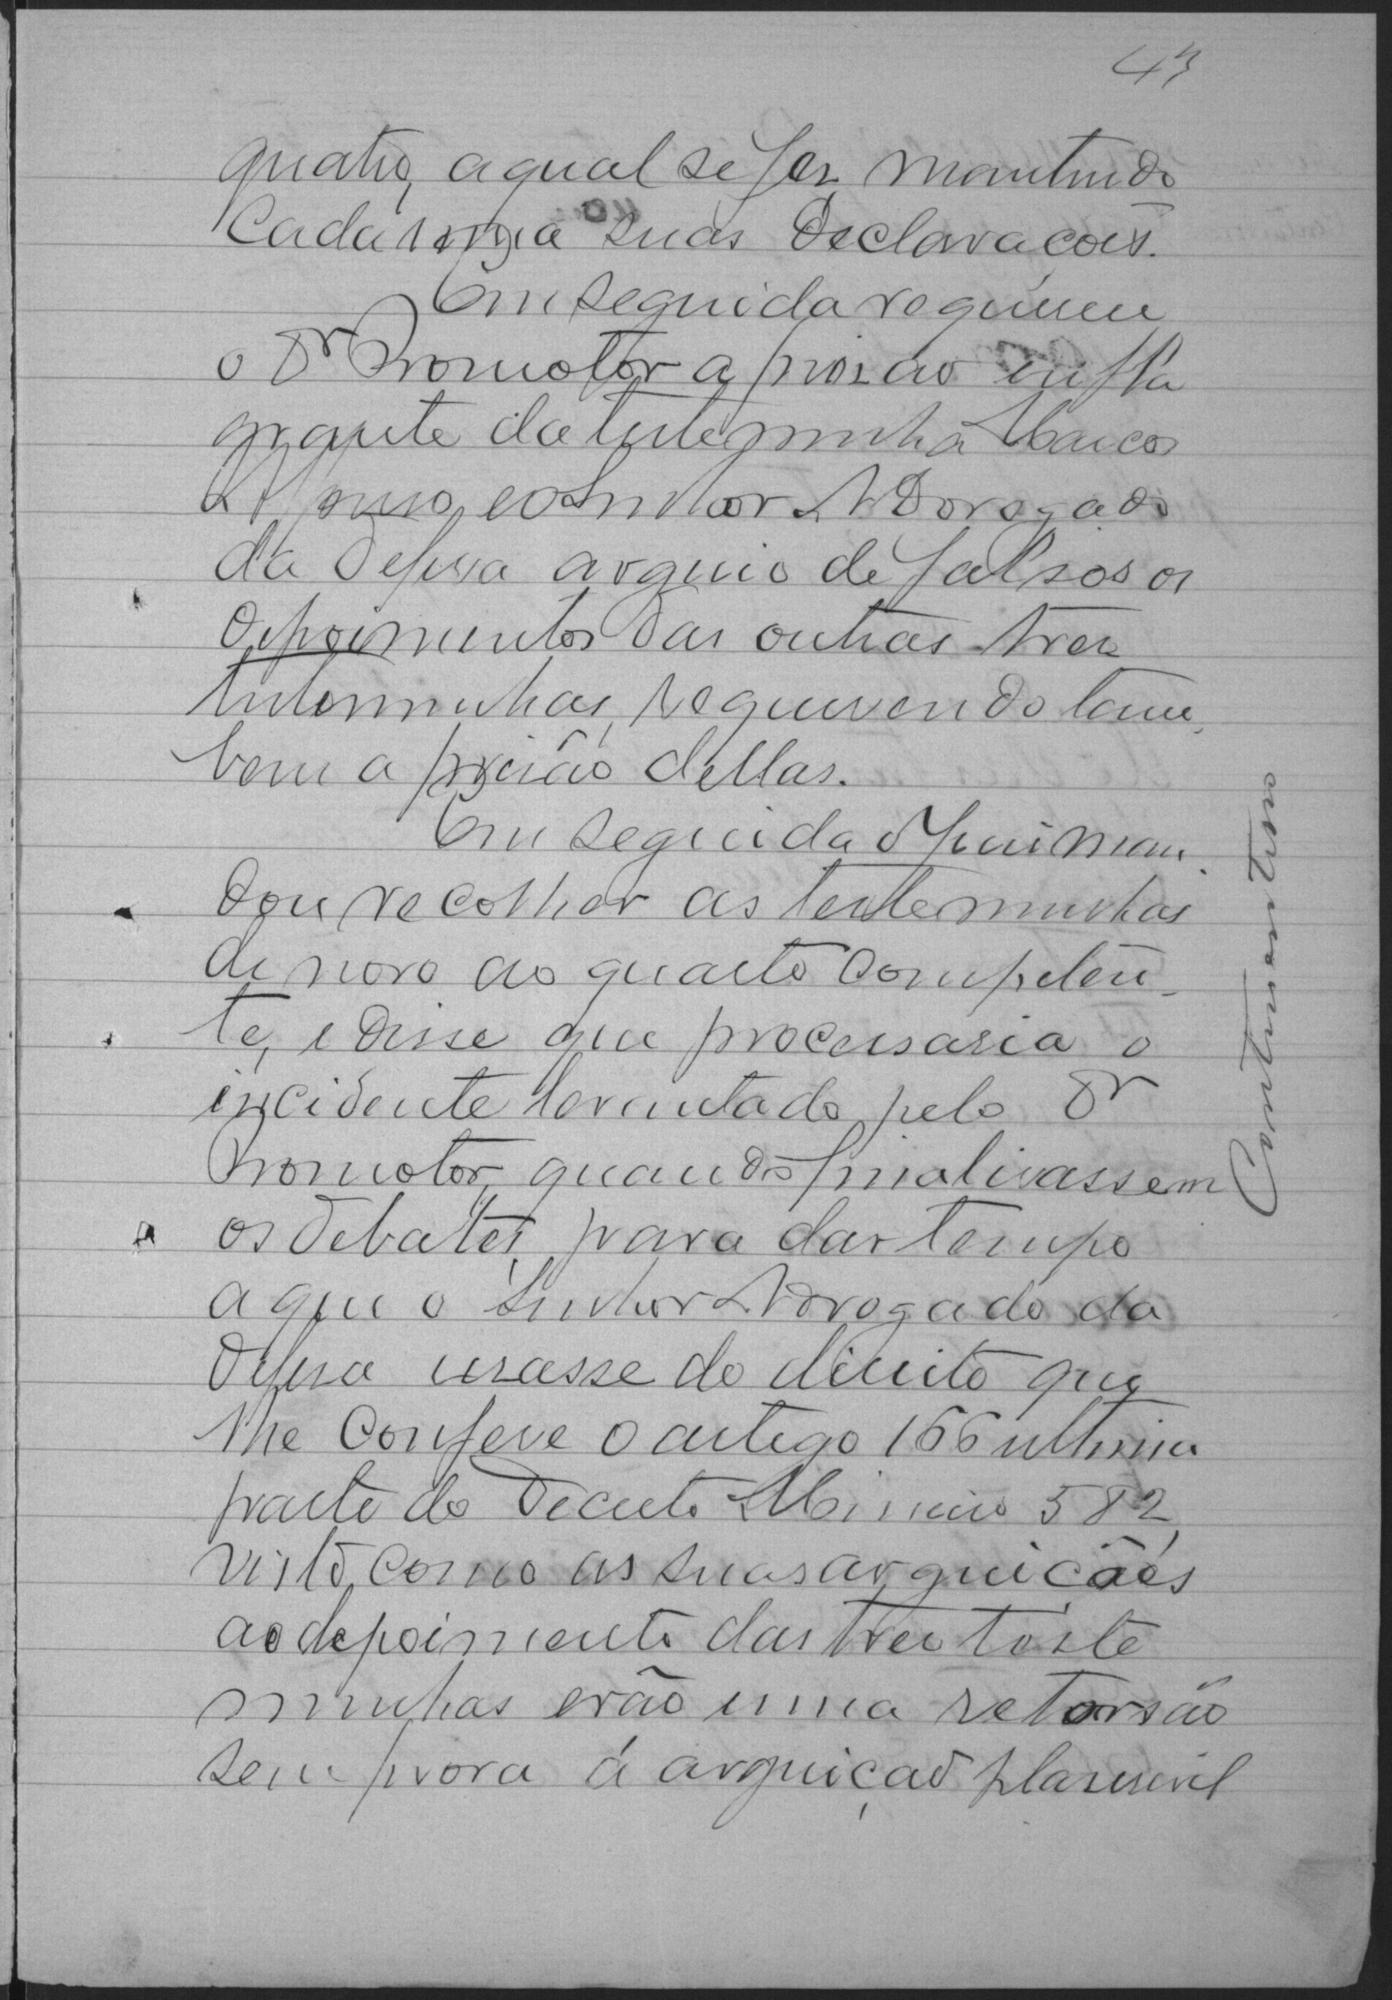 43
quatro, a qual se fez mantendo
Cada uma suas Declaracoẽs.
Em seguida requereu
o Dr Promotor a prisão em fla
grante da testeminha Marcos
e o Senhor Advogado
da Defesa arguio de falsos os
depoimentos das outras tres
testeminhas, requerendo tam
bem a prisão dellas.
Em seguida o Juiz man
dou recolher as testeminhas
de novo ao quarto Competen
te, e disse que processaria o
incidente levantado pelo Dr
Promotor, quando finalisassem
os debates, para dar tempo
a que o Senhor Advogado da
Defesa usasse do direito que
lhe Confere o artigo 166 ultima
parte do Decreto Mineiro 582,
visto como as suas arguições
ao depoimento das tres teste
minhas erão uma retorsão
sem prova á arguição plausivel